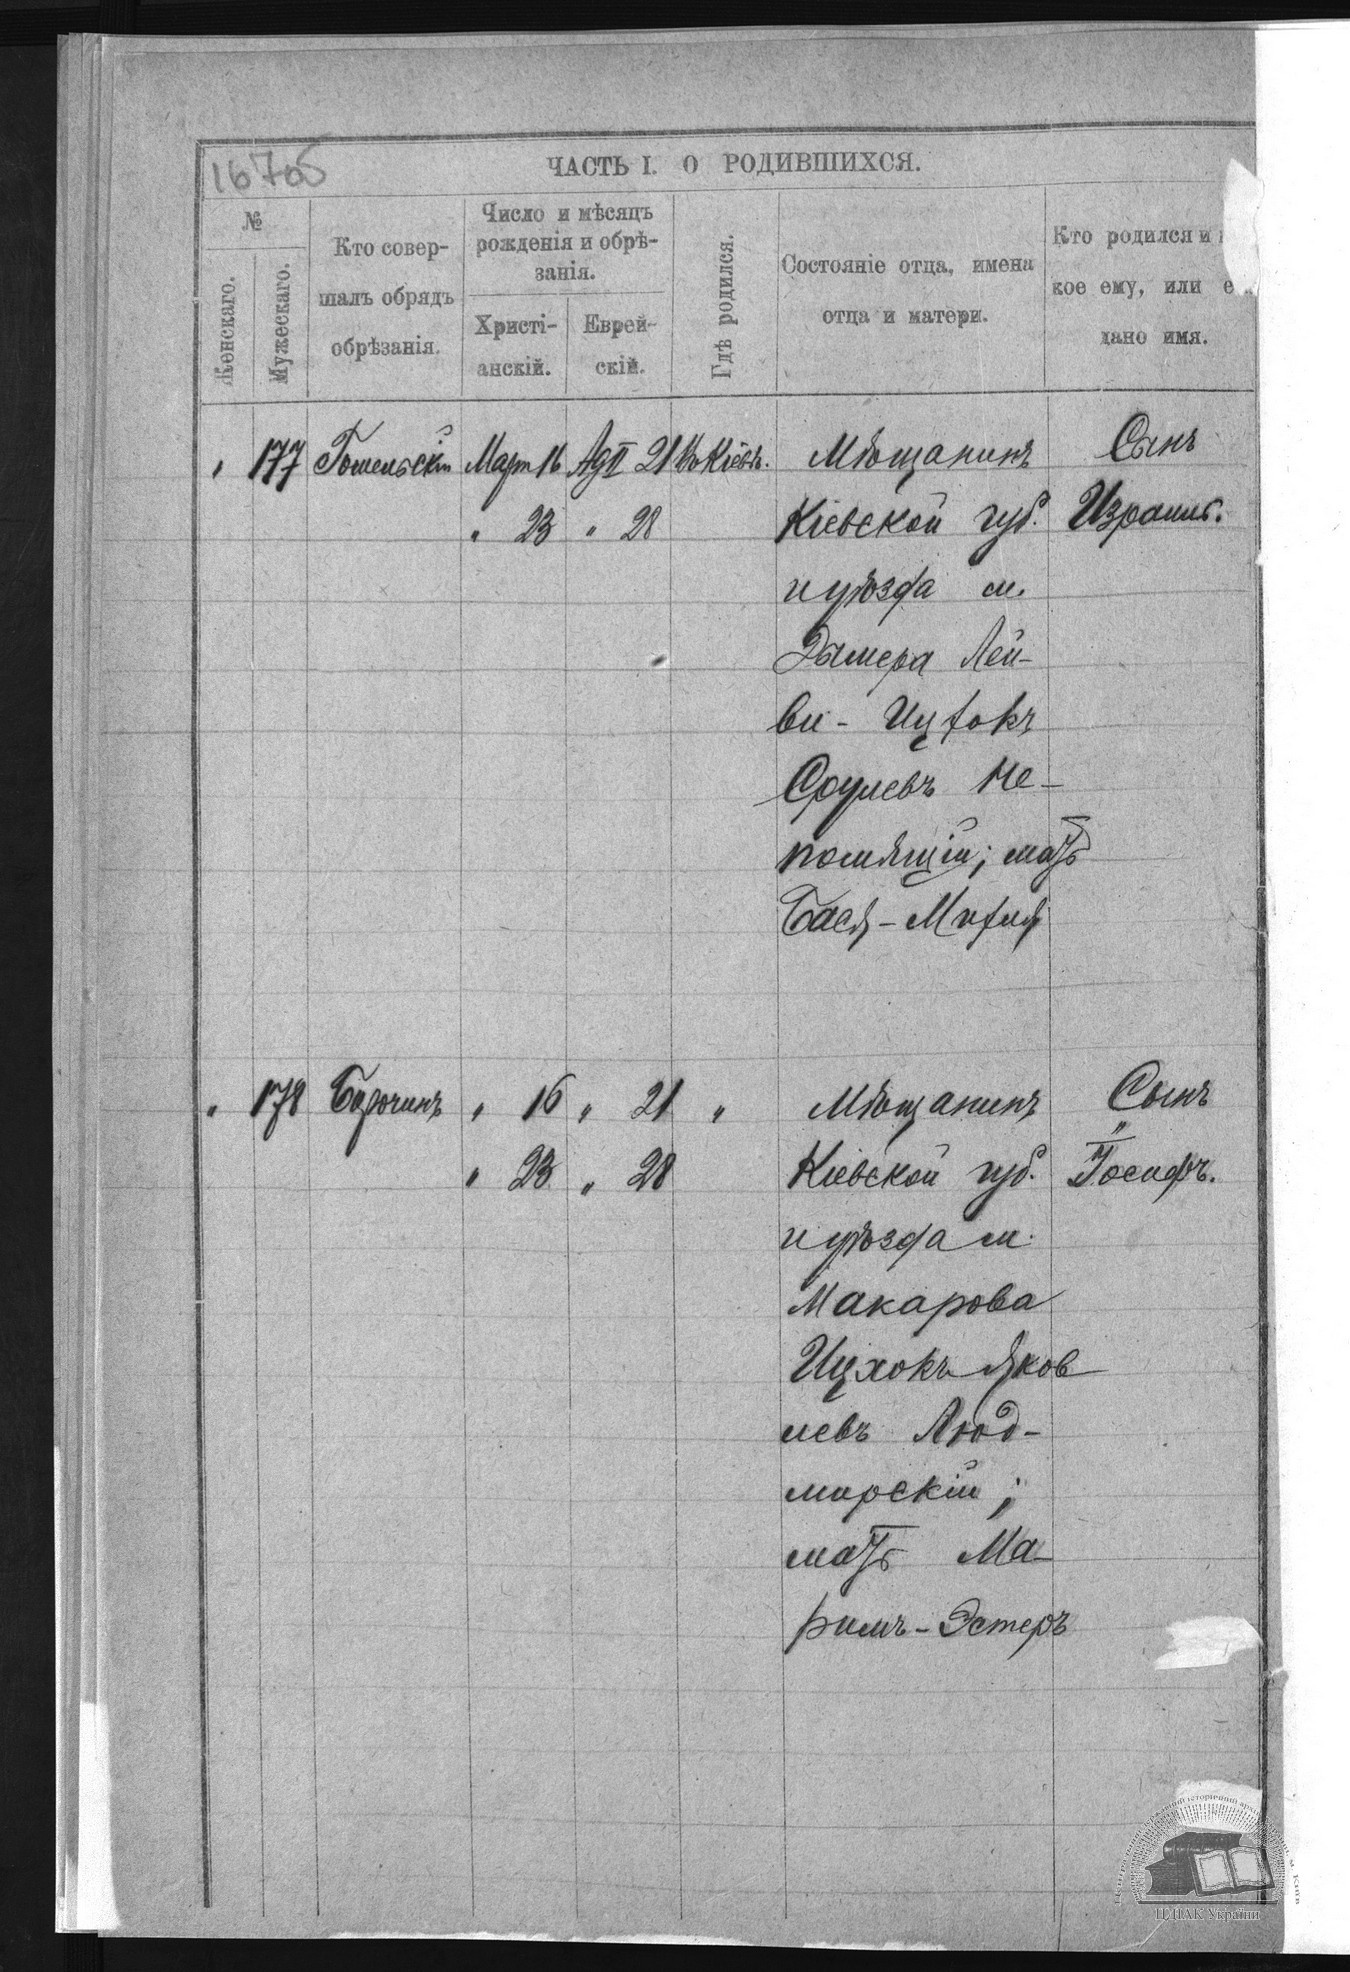 16705
ЧАСТЬ I. О РОДИВШИХСЯ.
№
Женскаго.
Мужескаго.
Кто совер-
шалъ обрядъ
обрѣзанія.
Число и мѣсяцъ
рожденія и обрѣ-
занія.
Христі-
анскій.
Еврей-
скій.
Гдѣ родился.
Состояніе отца, имена
отца и матери.
Кто родился и
кое ему, или е
дано имя.
„ 177 Гомельскій Март 16 Ад II 21 Въ Кіевѣ. Мѣщанинъ Сынъ
„ 23 „ 28 Кіевской губ. Израиль.
и уѣзда м.
Дымера Лей-
ви - Ицхокъ
Срулевъ Не-
помящій; мать
Бася - Михля
„ 178 Барочинъ „ 16 „ 21 „ Мѣщанинъ Сынъ
„ 23 „ 28 Кіевской губ. Іосифъ.
и уѣзда м.
Макарова
Ицхокъ Яков
левъ Люд-
мирскій;
мать Ма-
римъ - Эстеръ
ЦДІАК України